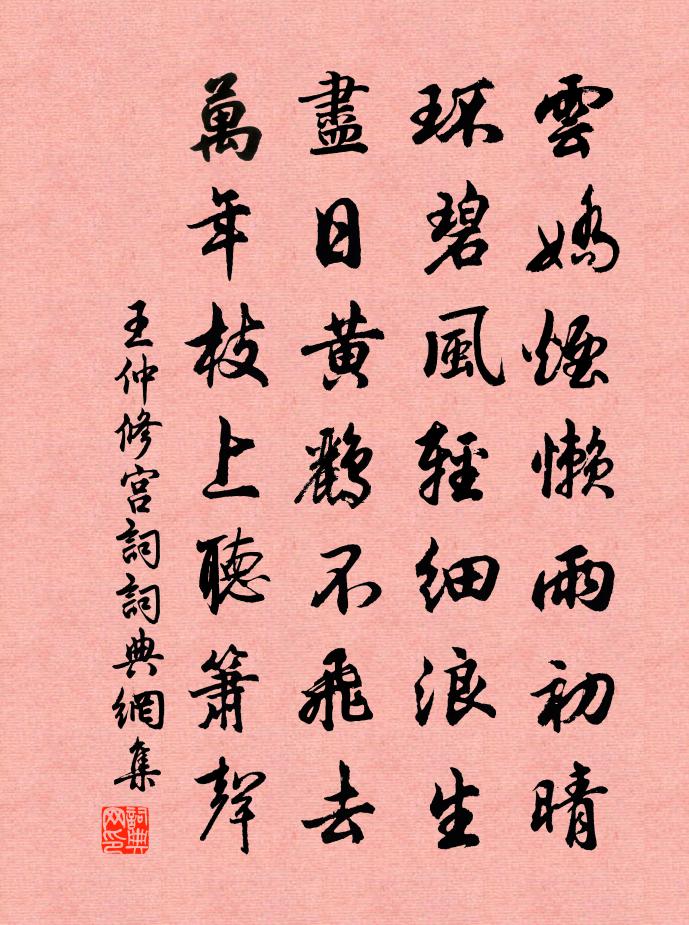 雲嬌煙懶雨初晴
环碧風輕細浪生
盡日黃鸝不飛去
萬年枝上聽簫聲
王仲修宮詞詞典網集
詞典网印